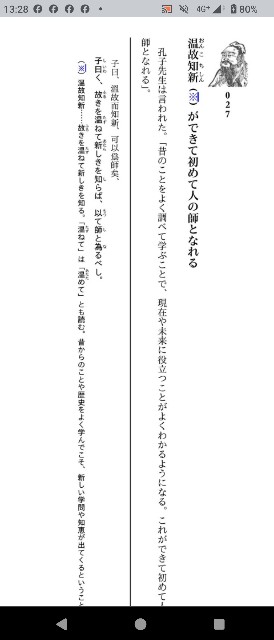 13:28 4G+ 80%
027
温故知新（※）ができて初めて人の師となれる
孔子先生は言われた。「昔のことをよく調べて学ぶことで、現在や未来に役立つことがよくわかるようになる。これができて初めて人
師となれる」。
子曰、温故而知新、可以爲師矣、
子曰く、故きを温ねて新しきを知らば、以て師と為るべし。
（※）温故知新……故きを温ねて新しきを知る。「温ねて」は「温めて」とも読む。昔からのことや歴史をよく学んでこそ、新しい学問や知恵が出てくるということ